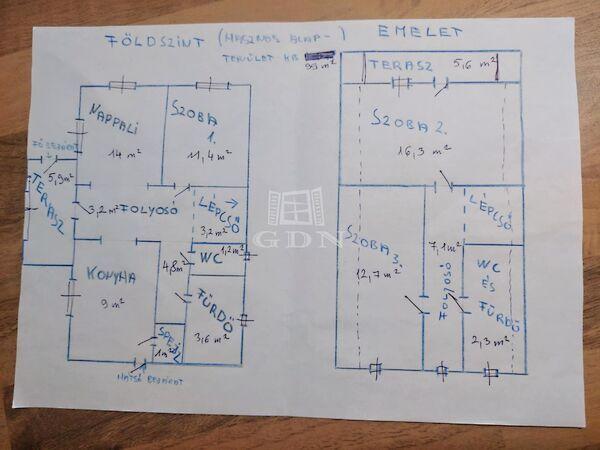 FÖLDSZINT (HASZNOS ALAP-
TERÜLET KB
99 m²)
EMELET
NAPPALI
14 m²
SZOBA
1.
11,4 m²
FŐBEJÁRAT
5,9 m²
TERASZ
3,2 m²
FOLYOSÓ
LÉPCSŐ
3,2 m²
1,2 m²
WC
4,8 m²
KONYHA
9 m²
FÜRDŐ
3,6 m²
SPEJZ
1 m²
HÁTSÓ BEJÁRAT
TERASZ 5,6 m²
SZOBA 2.
16,3 m²
LÉPCSŐ
SZOBA 3.
12,7 m²
7,1 m²
FOLYOSÓ
WC
ÉS
FÜRDŐ
2,3 m²
GDN